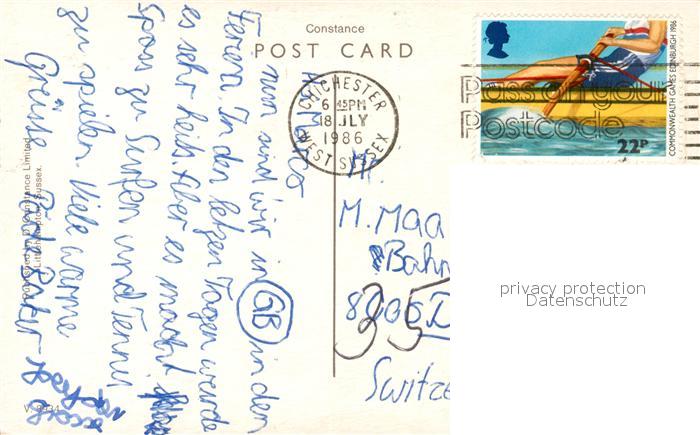 Constance
POST CARD
CHICHESTER
6 45PM
18 JLY
1986
WEST SUSSEX
Pass on your
Postcode
COMMONWEALTH GAMES EDINBURGH 1986
22P
Hallo
nun sind wir in GB in den
Ferien. In den letzen Tagen wurde
es sehr heiß. Aber es macht
Spass zu Surfen und Tennis
zu spielen. Viele warme
Grüsse
M. Maa
Bahn
35
Switze
Published by D. Constance Limited,
Littlehampton, Sussex.
privacy protection
Datenschutz